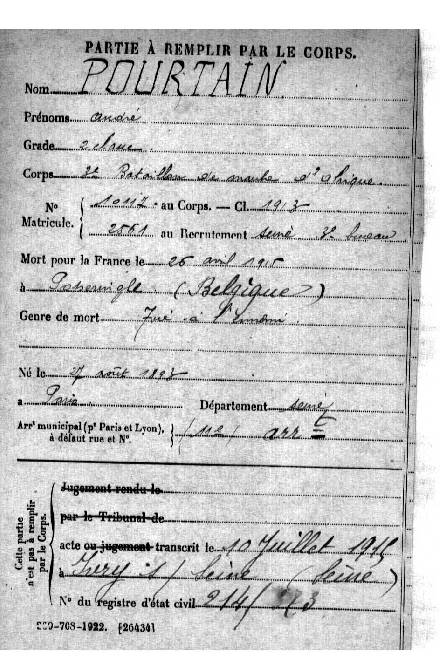 PARTIE À REMPLIR PAR LE CORPS.
Nom POURTAIN
Prénoms andré
Grade 2e classe
Corps 3e Bataillon de marche d'afrique
N° Matricule. { 10117 au Corps. — Cl. 1913
2551 au Recrutement Seine 3e bureau
Mort pour la France le 26 avril 1915
à (Belgique)
Genre de mort Tué à l'ennemi
Né le 27 août 1893
à Paris Département Seine
Arrt municipal (pr Paris et Lyon), à défaut rue et N°. { arr
Cette partie n'est pas à remplir par le Corps.
Jugement rendu le
par le Tribunal de
acte ou jugement transcrit le 10 Juillet
à Ivry s/ Seine (Seine)
N° du registre d'état civil 214/
‑708-1922. [26434]